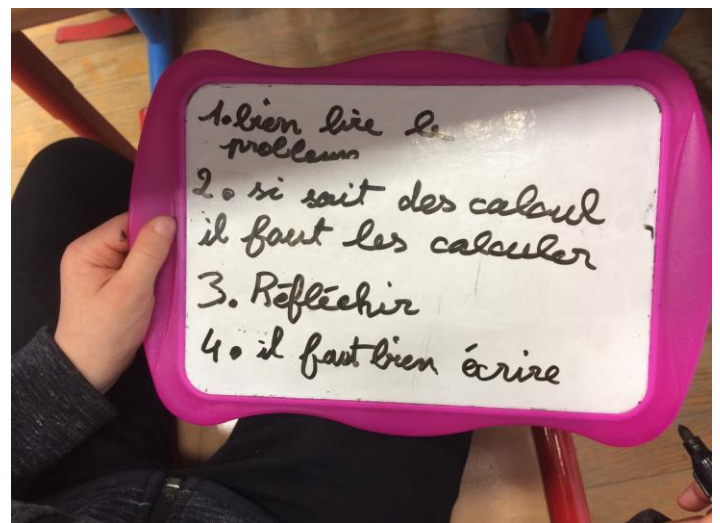 1. bien lire le
problem
2. si sait des calcul
il faut les calculer
3. Réfléchir
4. il faut bien écrire